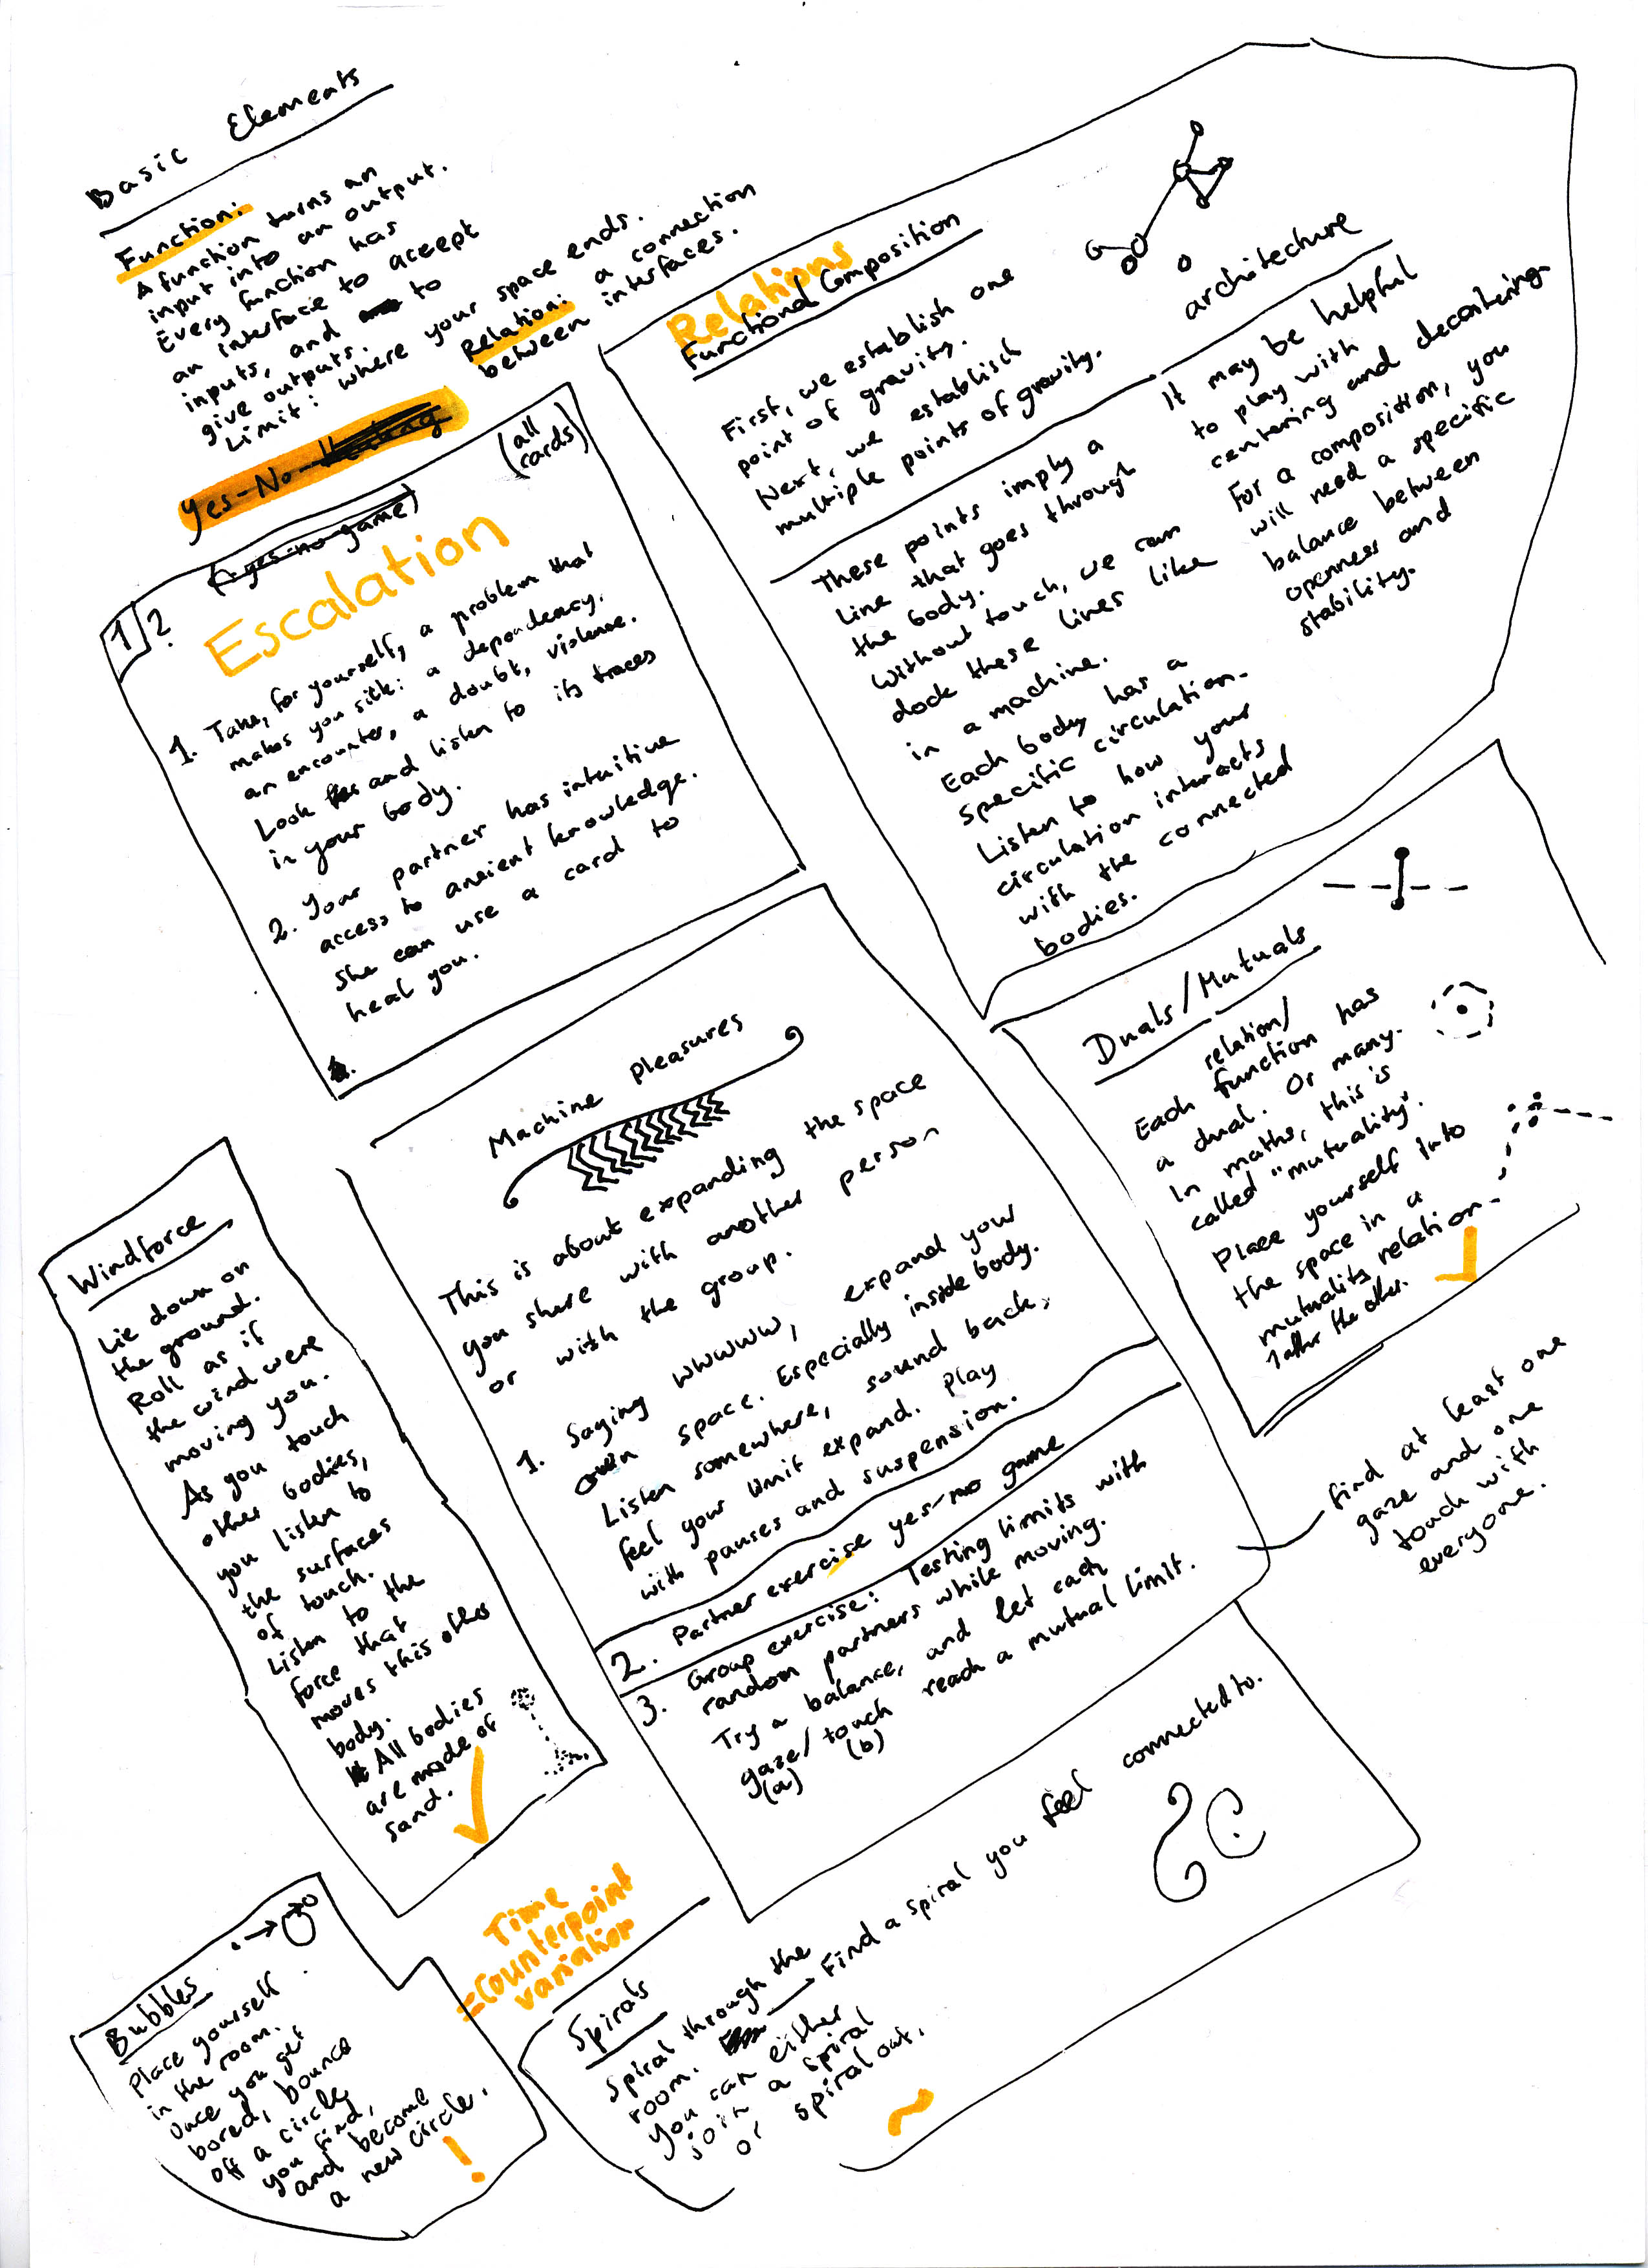 Basic Elements
Function:
A function turns an
input into an output.
Every function has
an interface to accept
inputs, and to
give outputs.
Limit: where your space ends.
Relation: a connection
between interfaces.
Yes-No-
(all
cards)
1/2?
(yes-no game)
Escalation
1. Take, for yourself, a problem that
makes you sick: a dependency,
an encounter, a doubt, violence.
Look and listen to its traces
in your body.
2. Your partner has intuitive
access to ancient knowledge.
She can use a card to
heal you.
Relations
Functional Composition
First, we establish one
point of gravity.
Next, we establisch
multiple points of gravity.
These points imply a
line that goes through
the body.
Without touch, we can
dock these lines like
in a machine.
Each body has a
specific circulation.
Listen to how your
circulation interacts
with the connected
bodies.
architecture
It may be helpful
to play with
centering and decentering.
For a composition, you
will need a specific
balance between
openness and
stability.
Duals/Mutuals
relation/
Each function has
a dual. Or many.
In maths, this is
called "mutuality".
Place yourself into
the space in a
mutuality relation.
1 after the other.
Machine Pleasures
This is about expanding the space
you share with another person
or with the group.
1. Saying wwwww, expand your
own space. Especially inside body.
Listen somewhere, sound back,
feel your limit expand. Play
with pauses and suspension.
2. Partner exercise yes-no game
3. Group exercise: Testing limits with
random partners while moving.
Try a balance, and let each
gaze/touch reach a mutual limit.
(a) (b)
find at least one
gaze and one
touch with
everyone.
Windforce
Lie down on
the ground.
Roll as if
the wind were
moving you.
As you touch
other bodies,
you listen to
the surfaces
of touch.
Listen to the
force that
moves this other
body.
All bodies
are made of
sand.
Time
=Counterpoint
variation
Bubbles
Place yourself
in the room.
Once you get
bored, bounce
off a circle
you find,
and become
a new circle.
!
Spirals
Spiral through the
room. Find a spiral you feel connected to.
You can either
join a spiral
or spiral out.